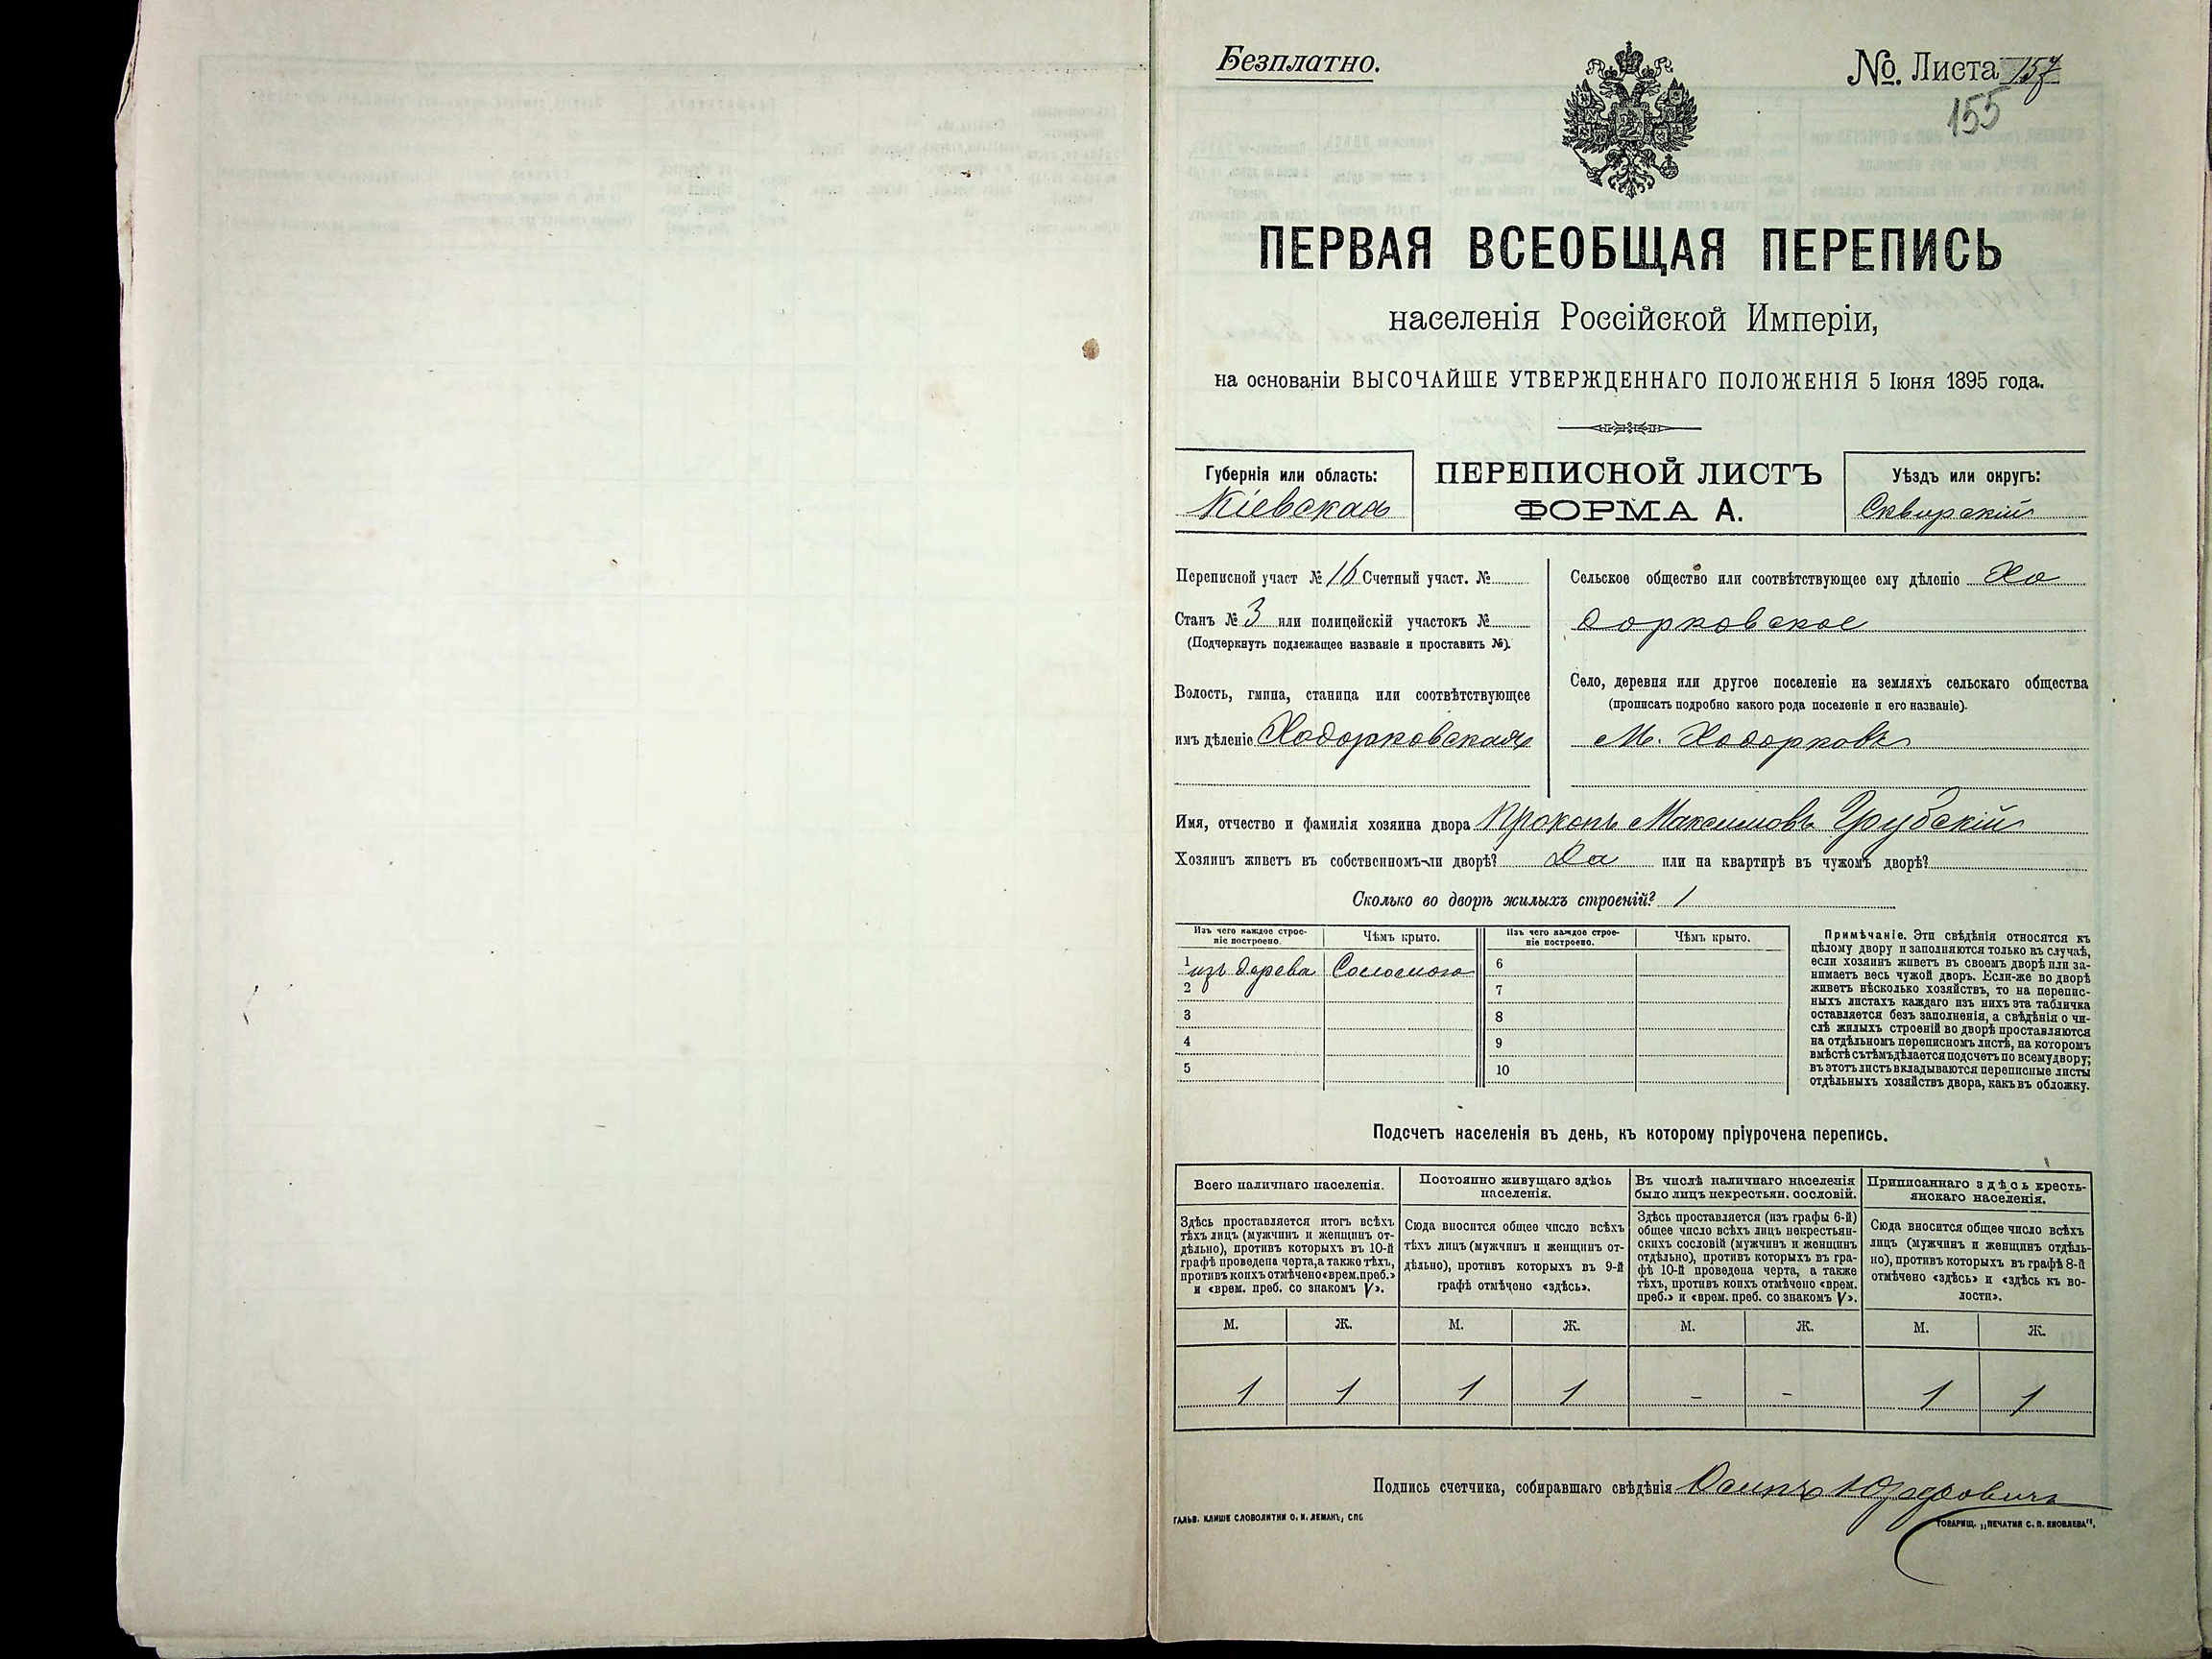 Безплатно.
№. Листа 157
155
ПЕРВАЯ ВСЕОБЩАЯ ПЕРЕПИСЬ
населенія Россійской Имперіи,
на основаніи ВЫСОЧАЙШЕ УТВЕРЖДЕННАГО ПОЛОЖЕНІЯ 5 Іюня 1895 года.
Губернія или область:
Кіевская
ПЕРЕПИСНОЙ ЛИСТЪ
ФОРМА А.
Уѣздъ или округъ:
Сквирскій
Переписной участ № 16 Счетный участ. №
Станъ № 3 или полицейскій участокъ №
(Подчеркнуть подлежащее названіе и проставить №).
Волость, гмина, станица или соотвѣтствующее
имъ дѣленіе Ходорковская
Сельское общество или соотвѣтствующее ему дѣленіе Хо
дорковское
Село, деревня или другое поселеніе на земляхъ сельскаго общества
(прописать подробно какого рода поселеніе и его названіе).
М. Ходорковъ
Имя, отчество и фамилія хозяина двора Прокопъ Максимовъ Грубскій
Хозяинъ живетъ въ собственномъ-ли дворѣ? Да или на квартирѣ въ чужомъ дворѣ?
Сколько во дворѣ жилыхъ строеній? 1
Изъ чего каждое строе-
ніе построено.
Чѣмъ крыто.
Изъ чего каждое строе-
ніе построено.
Чѣмъ крыто.
1 изъ дерева Соломою 6
2 7
3 8
4 9
5 10
Примѣчаніе. Эти свѣдѣнія относятся къ
цѣлому двору и заполняются только въ случаѣ,
если хозяинъ живетъ въ своемъ дворѣ или за-
нимаетъ весь чужой дворъ. Если-же во дворѣ
живетъ нѣсколько хозяйствъ, то на перепис-
ныхъ листахъ каждаго изъ нихъ эта табличка
оставляется безъ заполненія, а свѣдѣнія о чи-
слѣ жилыхъ строеній во дворѣ проставляются
на отдѣльномъ переписномъ листѣ, на которомъ
вмѣстѣ съ тѣмъ дѣлается подсчетъ по всему двору;
въ этотъ листъ вкладываются переписные листы
отдѣльныхъ хозяйствъ двора, какъ въ обложку.
Подсчетъ населенія въ день, къ которому пріурочена перепись.
Всего наличнаго населенія.
Здѣсь проставляется итогъ всѣхъ
тѣхъ лицъ (мужчинъ и женщинъ от-
дѣльно), противъ которыхъ въ 10-й
графѣ проведена черта, а также тѣхъ,
противъ коихъ отмѣчено «врем. преб.»
и «врем. преб. со знакомъ V».
Постоянно живущаго здѣсь
населенія.
Сюда вносится общее число всѣхъ
тѣхъ лицъ (мужчинъ и женщинъ от-
дѣльно), противъ которыхъ въ 9-й
графѣ отмѣчено «здѣсь».
Въ числѣ наличнаго населенія
было лицъ некрестьян. сословій.
Здѣсь проставляется (изъ графы 6-й)
общее число всѣхъ лицъ некрестьян-
скихъ сословій (мужчинъ и женщинъ
отдѣльно), противъ которыхъ въ гра-
фѣ 10-й проведена черта, а также
тѣхъ, противъ коихъ отмѣчено «врем.
преб.» и «врем. преб. со знакомъ V».
Приписаннаго здѣсь кресть-
янскаго населенія.
Сюда вносится общее число всѣхъ
лицъ (мужчинъ и женщинъ отдѣль-
но), противъ которыхъ въ графѣ 8-й
отмѣчено «здѣсь» и «здѣсь къ во-
лости».
М. Ж. М. Ж. М. Ж. М. Ж.
1 1 1 1 - - 1 1
Подпись счетчика, собиравшаго свѣдѣнія Осипъ
ГАЛЬВ. КЛИШЕ СЛОВОЛИТНИ О. И. ЛЕМАНЪ, СПБ
ТОВАРИЩ. „ПЕЧАТНЯ С. П. ЯКОВЛЕВА“.